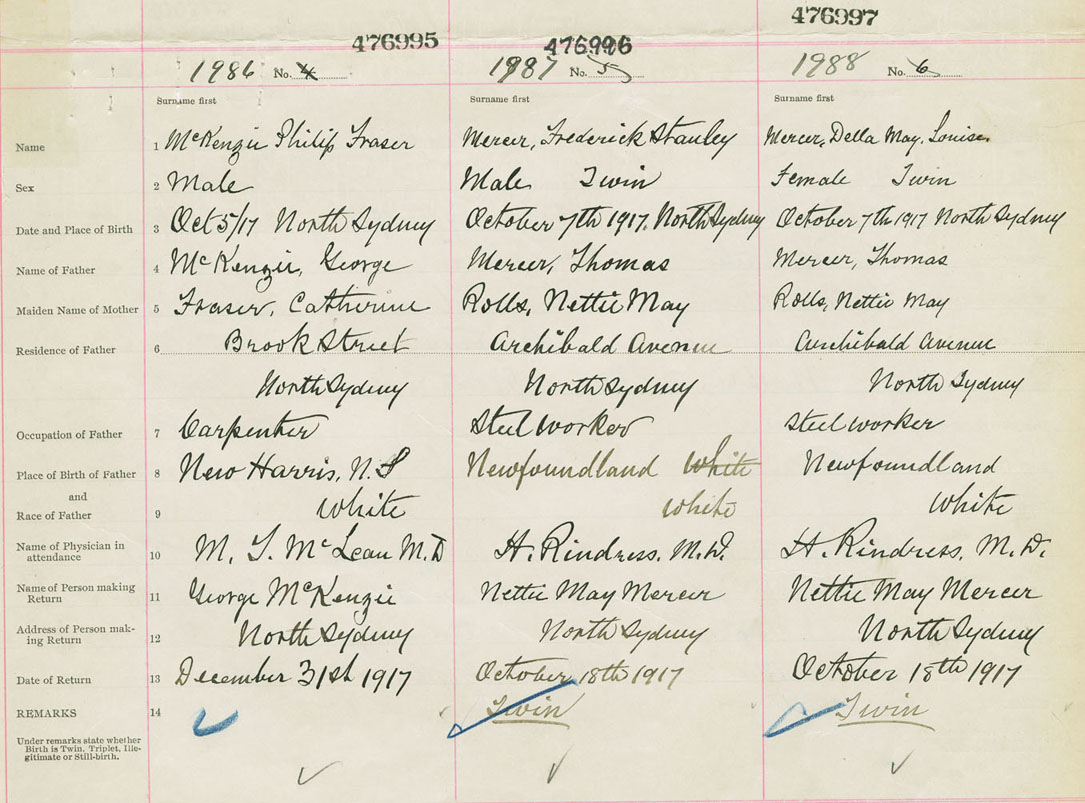 476995 476996 476997
1986 No. 4 1987 No. 5 1988 No. 6
Surname first Surname first Surname first
Name 1 McKenzie Philip Fraser Mercer, Frederick Stanley Mercer, Della May, Louise.
Sex 2 Male Male Twin Female Twin
Date and Place of Birth 3 Oct 5/17 North Sydney October 7th 1917. North Sydney October 7th 1917 North Sydney
Name of Father 4 McKenzie, George Mercer, Thomas Mercer, Thomas
Maiden Name of Mother 5 Fraser, Catherine Rolls, Nettie May Rolls, Nettie May
Residence of Father 6 Brook Street Archibald Avenue Archibald Avenue
North Sydney North Sydney North Sydney
Occupation of Father 7 Carpenter Steel worker Steel worker
Place of Birth of Father 8 New Harris, N.S Newfoundland White Newfoundland
and
Race of Father 9 White White White
Name of Physician in
attendance 10 M. T. McLean M.D H. Rindress, M.D. H. Rindress, M.D.
Name of Person making
Return 11 George McKenzie Nettie May Mercer Nettie May Mercer
Address of Person mak-
ing Return 12 North Sydney North Sydney North Sydney
Date of Return 13 December 31st 1917 October 18th 1917 October 18th 1917
REMARKS 14 Twin Twin
Under remarks state whether
Birth is Twin, Triplet, Ille-
gitimate or Still-birth.